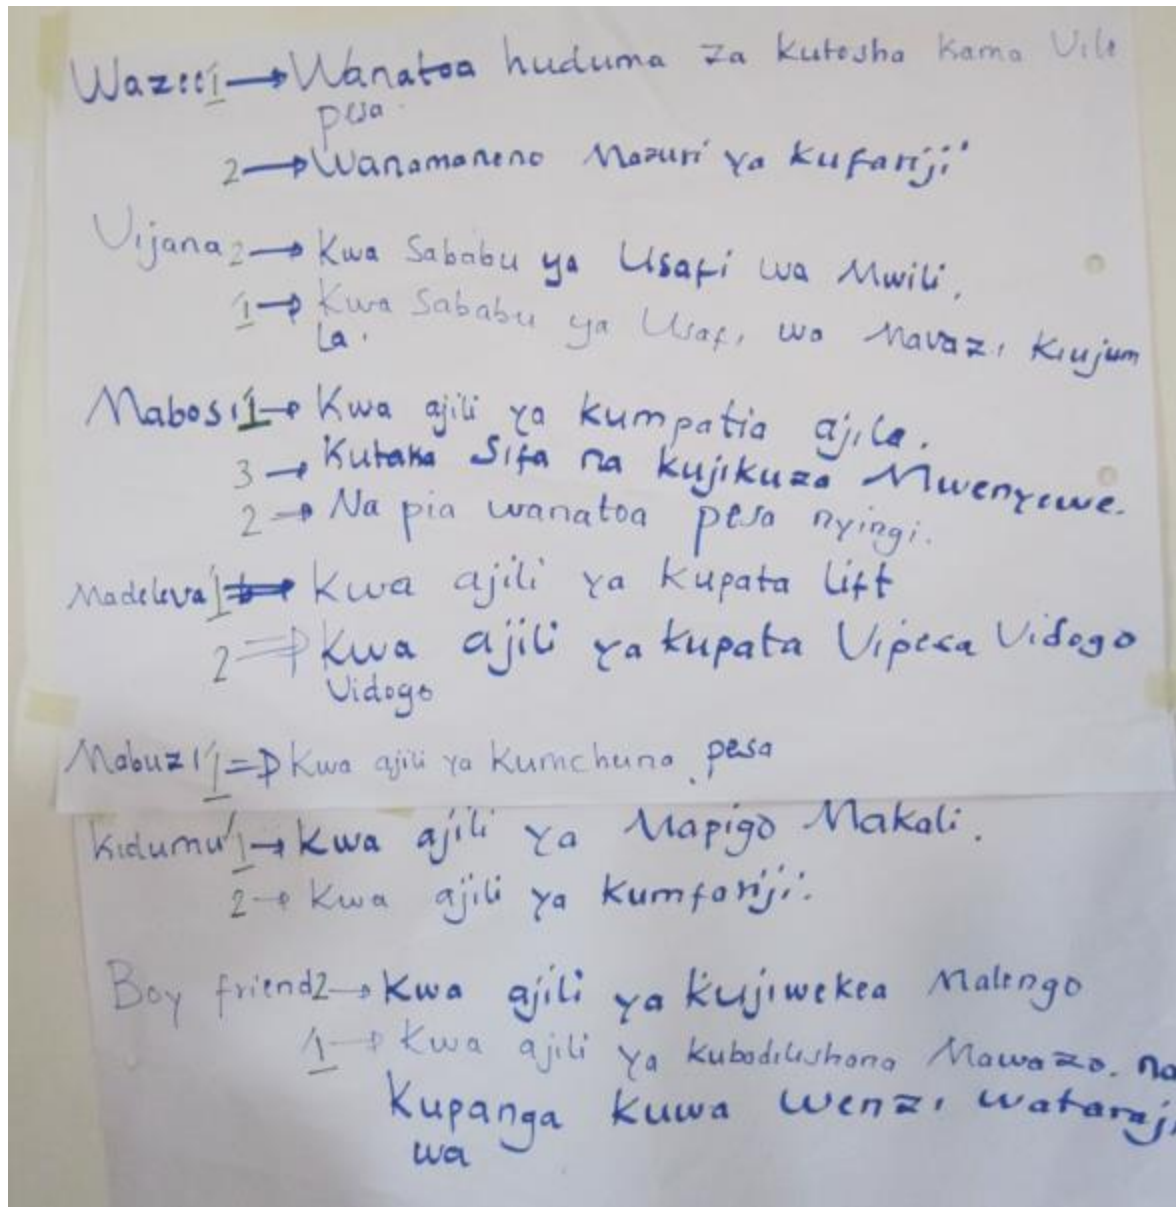 Wazee 1 → Wanatoa huduma za kutosha kama vile
pesa.
2 → Wanamaneno Mazuri ya kufariji
Vijana 2 → Kwa Sababu ya Usafi wa Mwili.
1 → Kwa Sababu ya Usafi wa Mavazi kiujum
la.
Mabosi 1 → Kwa ajili ya kumpatia ajila.
3 → Kutaka Sifa na kujikuza Mwenyewe.
2 → Na pia wanatoa pesa nyingi.
Madeleva 1 → Kwa ajili ya kupata lift
2 ⇒ Kwa ajili ya kupata Vipesa Vidogo
Vidogo
Mabuzi 1 ⇒ Kwa ajili ya kumchuna pesa
Kidumu 1 → Kwa ajili ya Mapigo Makali.
2 → Kwa ajili ya kumfariji.
Boy friend 2 → Kwa ajili ya kujiwekea Malengo
1 → Kwa ajili ya kubadilishana Mawazo. na
Kupanga kuwa wenzi wataraji
wa